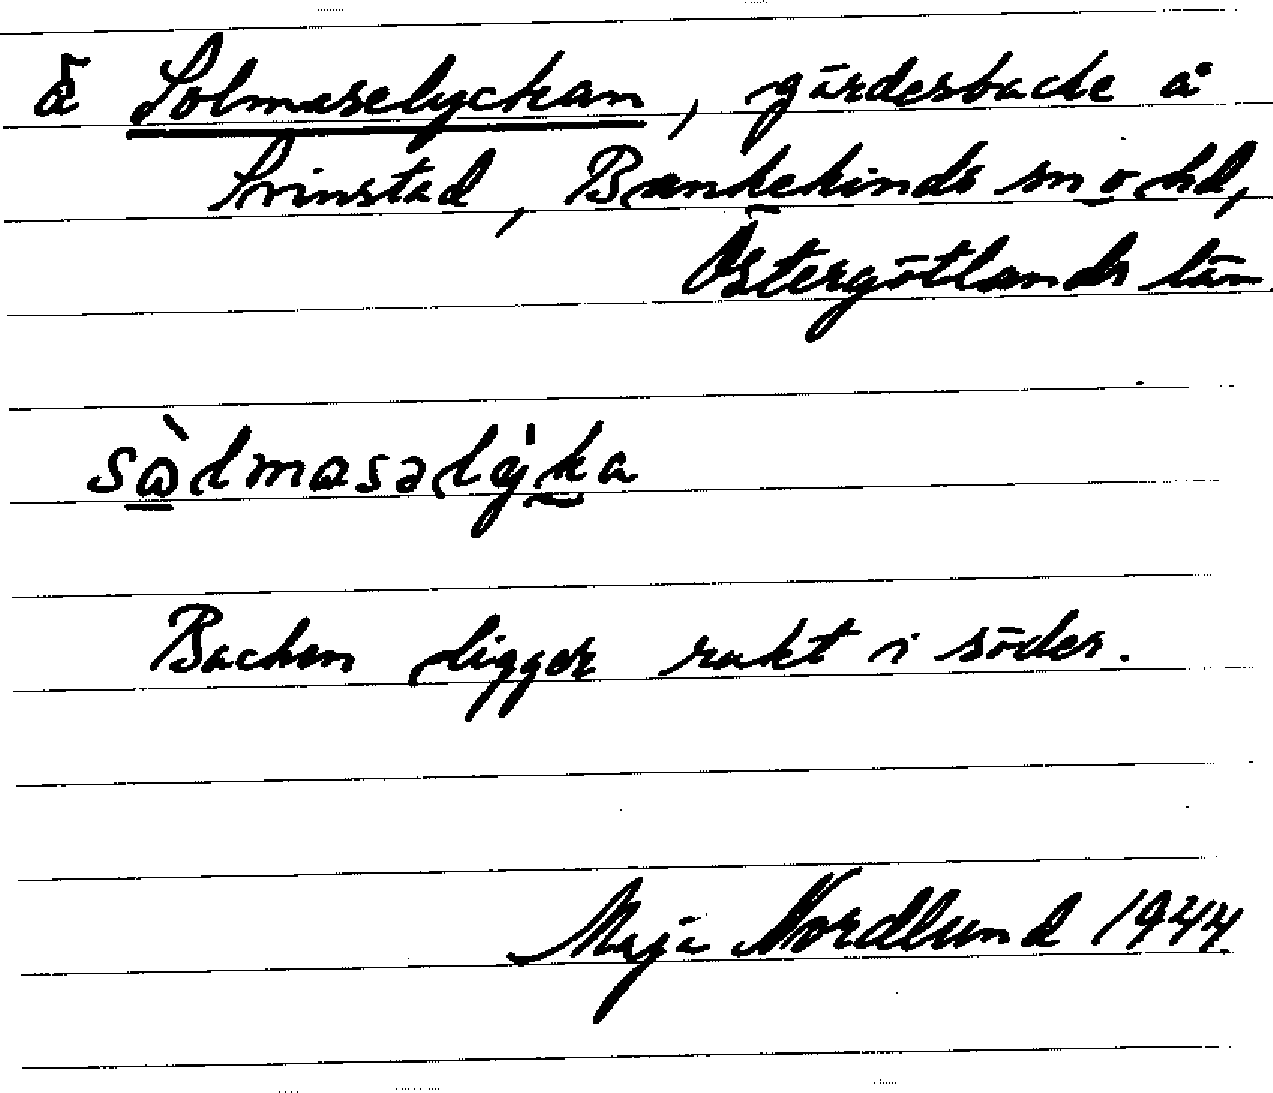 Ä Solmaselyckan, gärdesbacke å
Svinstad, Bankekinds sn o hd,
Östergötlands län
sɷ̀lmasəlýka
Backen ligger rakt i söder.
Maja Nordlund 1944